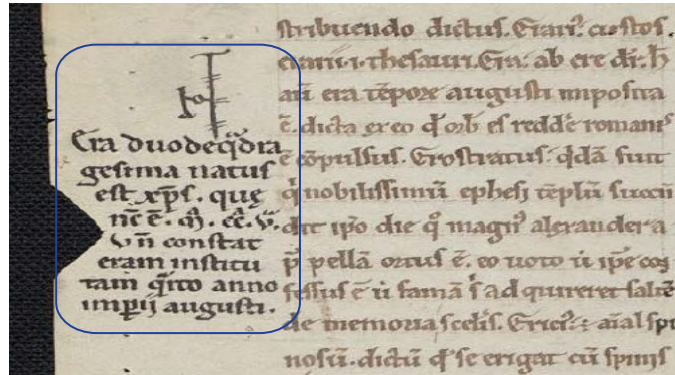 Era duodeq̄dra
gesima natus
est xp̄s. quę
nc̄ ē. ꝙ. cc̄. v̄.
vn̄ constat
eram institu
tam q̄rto anno
imp̄ij augusti.
stribuendo dictus. Erariꝰ custos.
erarii .i. thesauri. Era ab ere dr̄. h̄
aū era tēpore augusti imposita
ē. dicta ex eo qd̓ orb̓ es redde romanis
ē cōpulsus. Erostratus qdā fuit
q̓ nobilissimū ephesi tēplū succē
dit ipo die q̓ magnꝰ alexander a
p̄ pellā ortus ē. eo uoto ū ip̄e
fessus ē ū famā s ad quireret salt̄
de memoria scelis. Ericiꝰ aīal spi
nosū. dictū qd̓ se erigat cū spinis